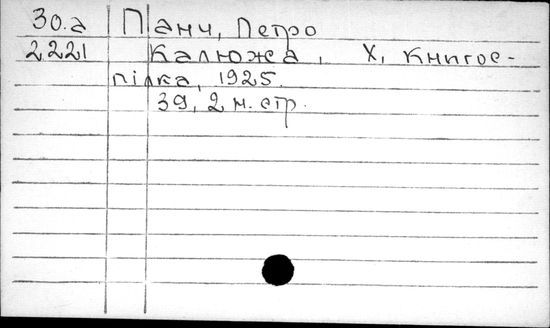 30.а Панч, Петро
2221 Калюжа, Х, Книгос-
пілка, 1925.
39, 2 н. стр.